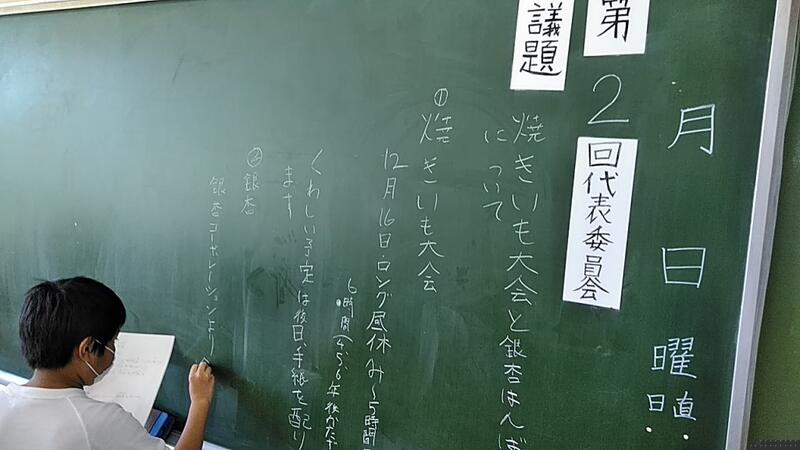 月 日 曜
日直
第2回代表委員会
議題
焼きいも大会と銀杏はんば
について
①焼きいも大会
12月16日・ロング昼休み~5時間
6時間(4、5、6年後かた
くわしい予定は後日、手紙を配り
ます
②銀杏
銀杏コーポレーションより